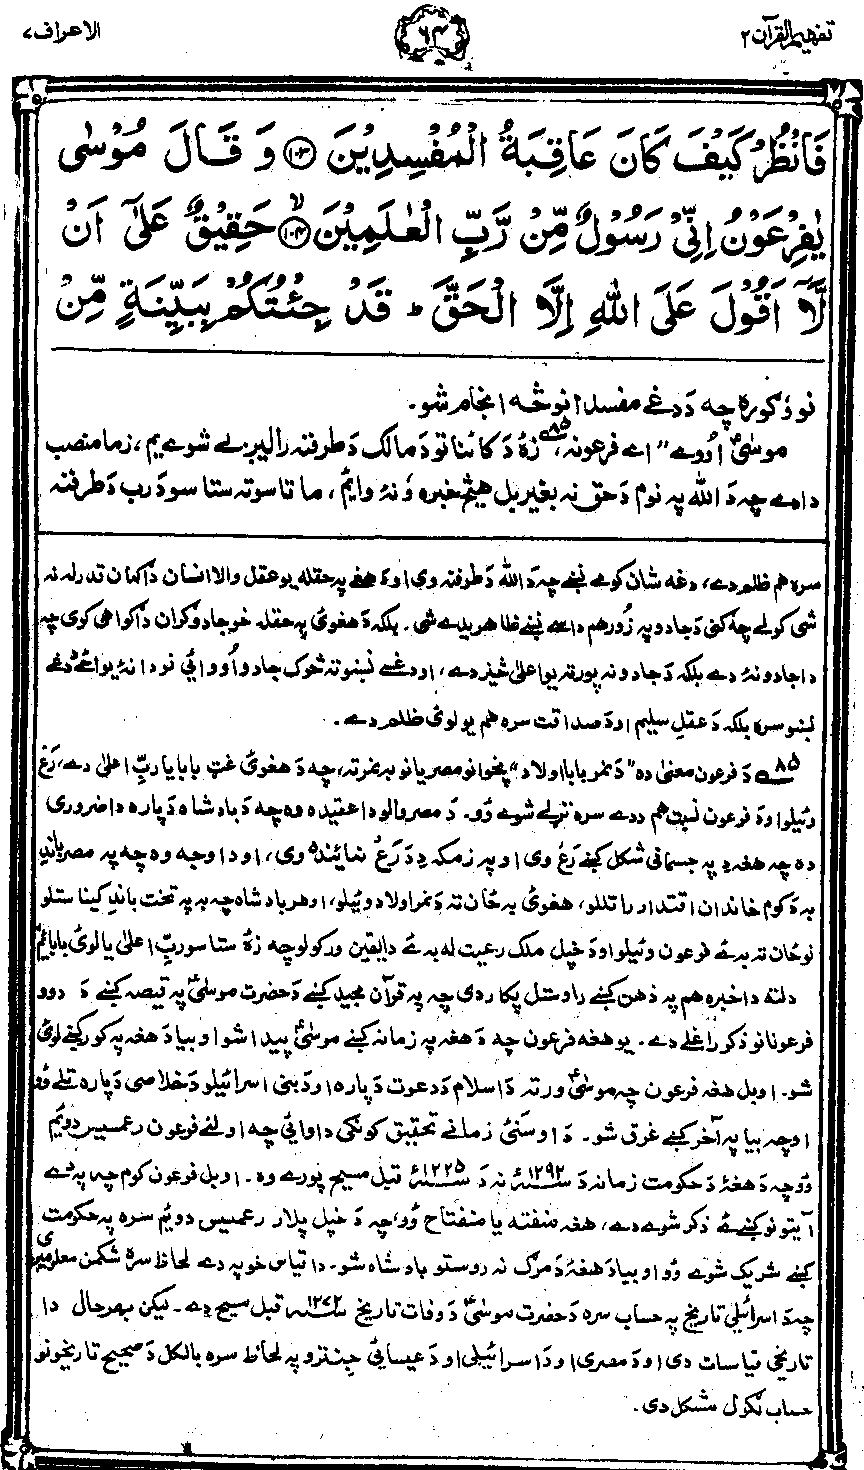 تفهیم القرآن ۲
۶۴
الاعراف ۷
فَانْظُرْ كَيْفَ كَانَ عَاقِبَةُ الْمُفْسِدِيْنَ ۝۱۰۳ وَ قَالَ مُوْسٰى
يٰفِرْعَوْنُ اِنِّيْ رَسُوْلٌ مِّنْ رَّبِّ الْعٰلَمِيْنَ ۝۱۰۴ۙ حَقِيْقٌ عَلٰٓى اَنْ
لَّآ اَقُوْلَ عَلَى اللّٰهِ اِلَّا الْحَقَّ ؕ قَدْ جِئْتُكُمْ بِبَيِّنَةٍ مِّنْ
نو وُګوره چه دَ دغے مفسدانو څه انجام شو۔
موسیٰؑ اوُوے "اے فرعونہ،۸۵ زۂ دَ کائناتو دَ مالک دَ طرفنہ رالیږلے شوے یم، زما منصب
دا دے چه دَ اللّٰه په نوم دَ حق نه بغیر بل هیڅ خبره وُ نۂ وایم، ما تاسو ته ستاسو دَ رب دَ طرفنه
سره هم ظلم دے، دغه شان کومے نښے چه دَ اللّٰه دَ طرفنه وی او دَ هغے په حقله یو عقل والا انسان دا ګمان قدرله نه
شی کولے چه ګنی دَ جادو په زُور هم داسے نښے ظاهریدے شی۔ بلکه دَ هغوئ په حقله خو جادوګران دا ګواهی کوی چه
دا جادو نۂ دے بلکه دَ جادو نه پورته یو اعلیٰ څیز دے، او دغسے نښو ته څوک جادو اُووائی نو دا نۂ یواځے دَ دغے
نښو سره بلکه دَ عقلِ سلیم او دَ صداقت سره هم یو لوئ ظلم دے۔
۸۵ دَ فرعون معنیٰ ده "دَ نمر بابا اولاد" پخوانو مصریانو به نمر ته، چه دَ هغوئ غټ بابا یا ربِّ اعلیٰ دے، رَغ
وئیلو او دَ فرعون نسبت هم دِدے سره تړلے شوے وُو۔ دَ مصر والو دا عقیده وه چه دَ بادشاه دَ پاره دا ضروری
ده چه هغه دِ په جسمانی شکل کښے رَغ وی او په زمکه دِ دَ رَغ نمائنده وی، او دا وجه وه چه په مصر باندِ
به دَ کوم خاندان اقتدار راتللو، هغوئ به ځان ته دَ نمر اولاد وئیلو، او هر بادشاه چه به په تخت باندِ کیناستلو
نو ځان ته به ئے فرعون وئیلو او دَ خپل ملک رعیت له به ئے دا یقین ورکولو چه زۂ ستاسو ربِّ اعلیٰ یا لوئ بابا یم
دلته دا خبره هم په ذهن کښے راوستل پکار دی چه په قرآن مجید کښے دَ حضرت موسیٰؑ په قیصه کښے دَ دوو
فرعونانو ذکر راغلے دے۔ یو هغه فرعون چه دَ هغه په زمانه کښے موسیٰؑ پیدا شو او بیا دَ هغه په کور کښے لوئ
شو۔ او بل هغه فرعون چه موسیٰؑ ورته دَ اسلام دَ دعوت دَ پاره او دَ بنی اسرائیلو دَ خلاصی دَ پاره تلے وُو
او چه بیا په آخر کښے غرق شو۔ دَ اوسنئ زمانے تحقیق کونکی دا وائی چه اولنے فرعون رعمسیس دوئم
وُو چه دَ هغۂ دَ حکومت زمانه دَ ۱۲۹۲ء نه دَ ۱۲۲۵ء قبل مسیح پورے وه۔ او بل فرعون کوم چه په دے
آیتونو کښے ئے ذکر شوے دے، هغه منفته یا منفتاح وُو، چه دَ خپل پلار رعمسیس دوئم سره په حکومت
کښے شریک شوے وُو او بیا دَ هغۂ دَ مرګ نه روستو بادشاه شو۔ دا قیاس خو په دے لحاظ سره شکمن معلومیږی
چه دَ اسرائیلی تاریخ په حساب سره دَ حضرت موسیٰؑ دَ وفات تاریخ ۱۲۷۲ء قبل مسیح دے۔ لیکن بهرحال دا
تاریخی قیاسات دی او دَ مصری او دَ اسرائیلی او دَ عیسائی جنترو په لحاظ سره بالکل دَ صحیح تاریخونو
حساب لګول مشکل دی۔